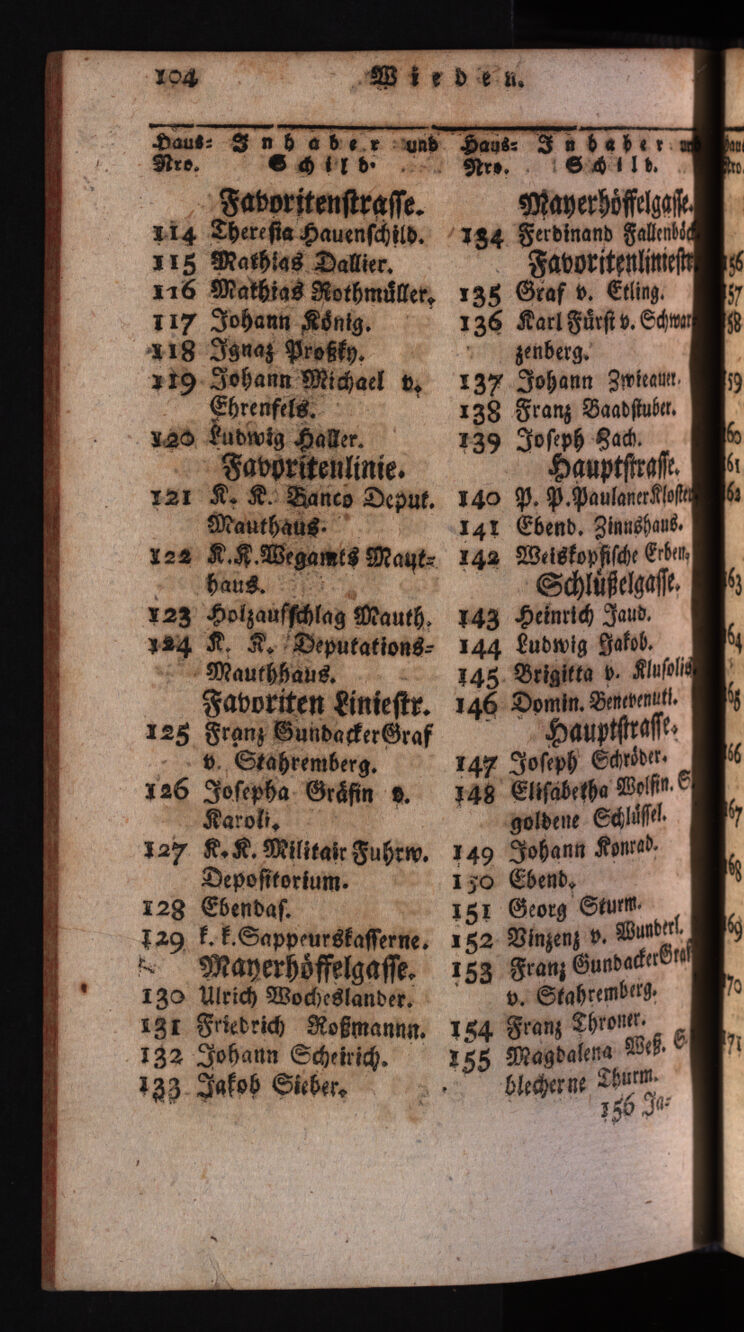 104 Wieden.
Haus= Inhaber und
Nro. Schild.
Favoritenstrasse.
114 Theresia Hauenschild.
115 Mathias Dallier.
116 Mathias Rothmüller.
117 Johann König.
118 Ignaz Proßky.
119 Johann Michael v.
Ehrenfels.
120 Ludwig Haller.
Favoritenlinie.
121 K. K. Banco Deput.
Mauthaus.
122 K.K.Wegamts Maut=
haus.
123 Holzaufschlag Mauth.
124 K. K. Deputations=
Mauthhaus.
Favoriten Liniestr.
125 Franz Gundacker Graf
v. Stahremberg.
126 Josepha Gräfin v.
Karoli.
127 K.K. Militair Fuhrw.
Depositorium.
128 Ebendas.
129 k. k. Sappeurskasserne.
Mayerhöffelgasse.
130 Ulrich Wocheslander.
131 Friedrich Roßmannn.
132 Johann Scheirich.
133 Jakob Sieber.
Haus= Inhaber
Nro. Schild.
Mayerhöffelgasse.
134 Ferdinand
Favoritenliniestr
135 Graf v. Etling.
136 Karl Fürst v. Schwar
zenberg.
137 Johann Zwieauer.
138 Franz Baadstuber.
139 Joseph Zach.
Hauptstrasse.
140 P. P. Paulaner Kloster
141 Ebend. Zinnshaus.
142 Weiskopfische Erben,
Schlüßelgasse.
143 Heinrich Jaud.
144 Ludwig Jakob.
145 Brigitta v. Klusolis
146 Domin. Benevenuti.
Hauptstrasse.
147 Joseph Schröder.
148 Elisabetha Wolfin. S
goldene Schlüssel.
149 Johann Konrad.
150 Ebend.
151 Georg Sturm.
152 Vinzenz v. Wunderl.
153 Franz Gundacker Graf
v. Stahremberg.
154 Franz Throner.
155 Magdalena Weß. S
blecherne Thurm.
156 Ja=